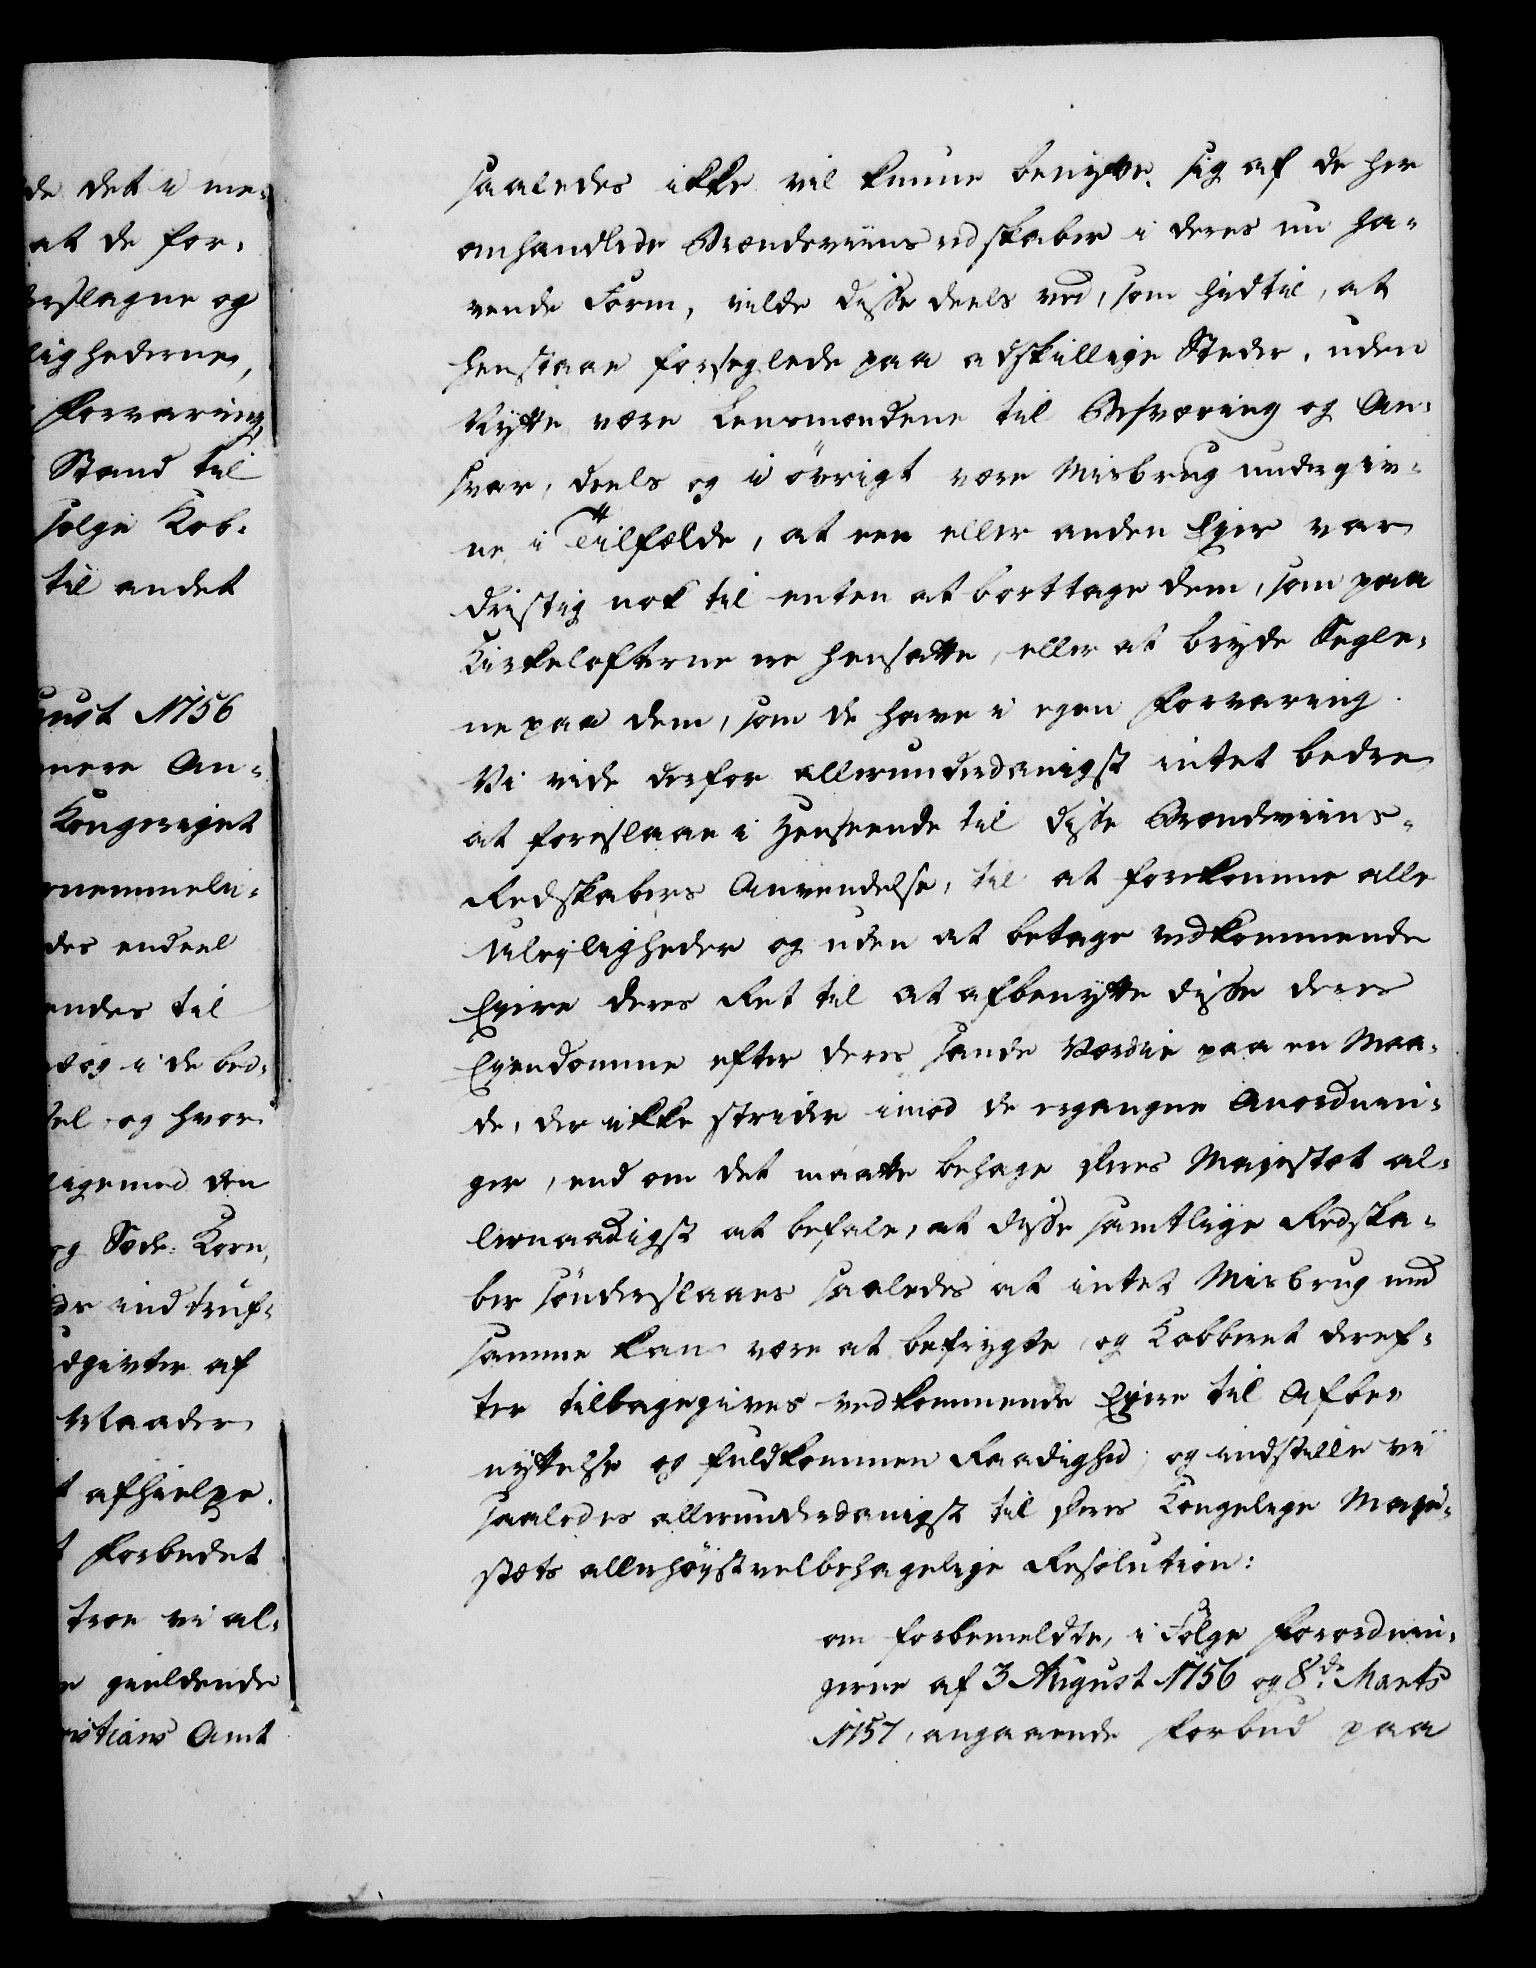 de det i me-
at de for-
erslagne og
lighederne,
Forvaring
Stand til
følge Kob-
til andet
gust 1756
mere An-
Kongeriget
rnemmeli-
des endeel
endes til
og i de bed-
sel og hvor
ligemed den
og Sæde-Korn,
de indtruf-
dgivter af
Maader
t afhielpe.
t forbudet
troe vi al-
e gieldende
ristians Amt
saaledes ikke vil kunne benytte sig af de her
omhandlede Brændeviinsredskaber i deres nu ha-
vende Form, vilde disse deels ved, som hidtil, at
henstaae forseglede paa adskillige Steder, uden
Nytte være Lensmændene til Besværing og An-
svar, deels og i øvrigt være Misbrug undergiv-
ne i Tilfælde, at een eller anden Ejer var
dristig nok til enten at borttage dem, som paa
Kirkelofterne ere hensatte, eller at bryde Segle-
ne paa dem, som de have i egen Forvaring.
Vi vide derfor allerunderdanigst intet bedre
at foreslaae i Henseende til disse Brændeviins-
Redskabers Anvendelse, til at forekomme alle
Uleyligheder og uden at betage vedkommende
Ejere deres Ret til at afbenytte disse deres
Ejendomme efter deres sande Værdie paa en Maa-
de, der ikke strider imod de ergangne Anordnin-
ger, end om det maatte behage Deres Majestæt al-
lernaadigst at befale, at disse samtlige Redska-
ber sønderslaaes saaledes at intet Misbrug med
samme kan være at befrygte, og Kobberet deref-
ter tilbagegives vedkommende Ejere til Afbe-
nyttelse og fuldkommen Raadighed; og indstille vi
saaledes allerunderdanigst til Deres Kongelige Maje-
stæts allerhøystvelbehagelige Resolution:
om forbemeldte, i Følge Forordnin-
gerne af 3 August 1756 og 8de Marts
1757, angaaende Forbud paa